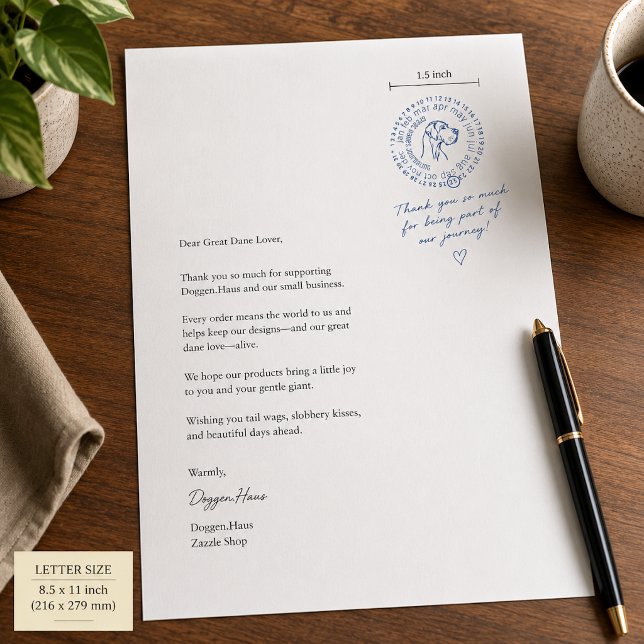 1.5 inch
jan feb mar apr may jun jul aug
oct nov dec
Thank you so much
for being part of
our journey!
Dear Great Dane Lover,
Thank you so much for supporting
Doggen.Haus and our small business.
Every order means the world to us and
helps keep our designs—and our great
dane love—alive.
We hope our products bring a little joy
to you and your gentle giant.
Wishing you tail wags, slobbery kisses,
and beautiful days ahead.
Warmly,
Doggen.Haus
Doggen.Haus
Zazzle Shop
LETTER SIZE
8.5 x 11 inch
(216 x 279 mm)